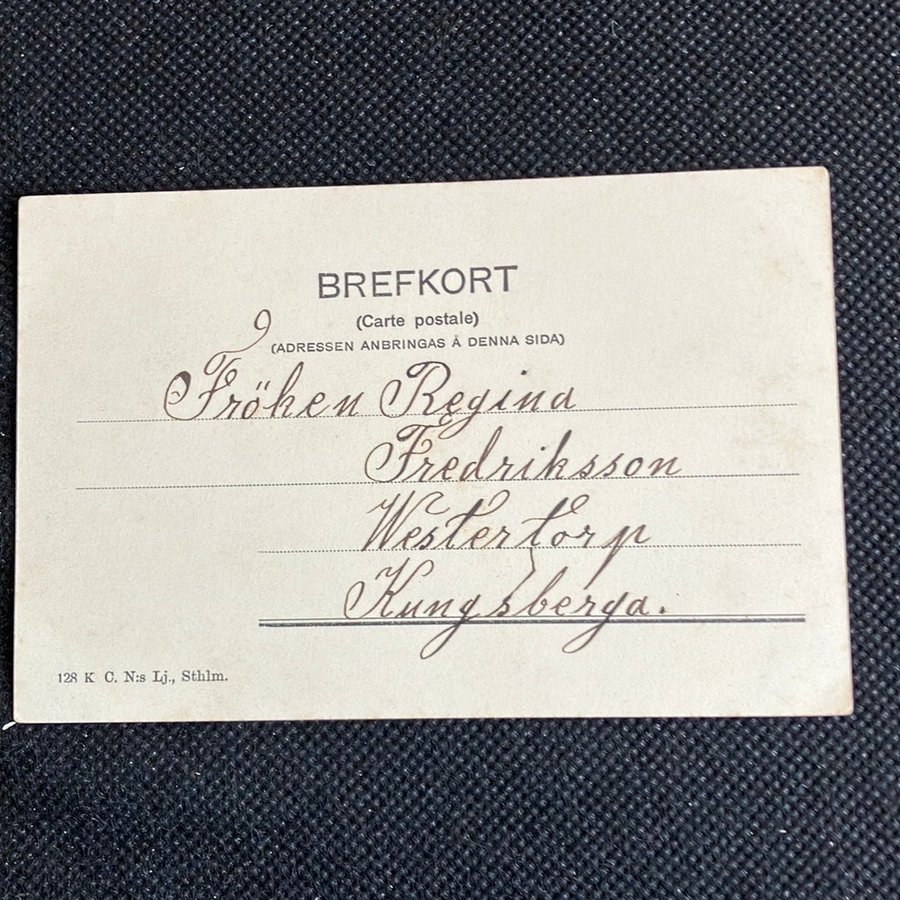 BREFKORT
(Carte postale)
(ADRESSEN ANBRINGAS Å DENNA SIDA)
Fröken Regina
Fredriksson
Westertorp
Kungsberga.
128 K C. N:s Lj., Sthlm.